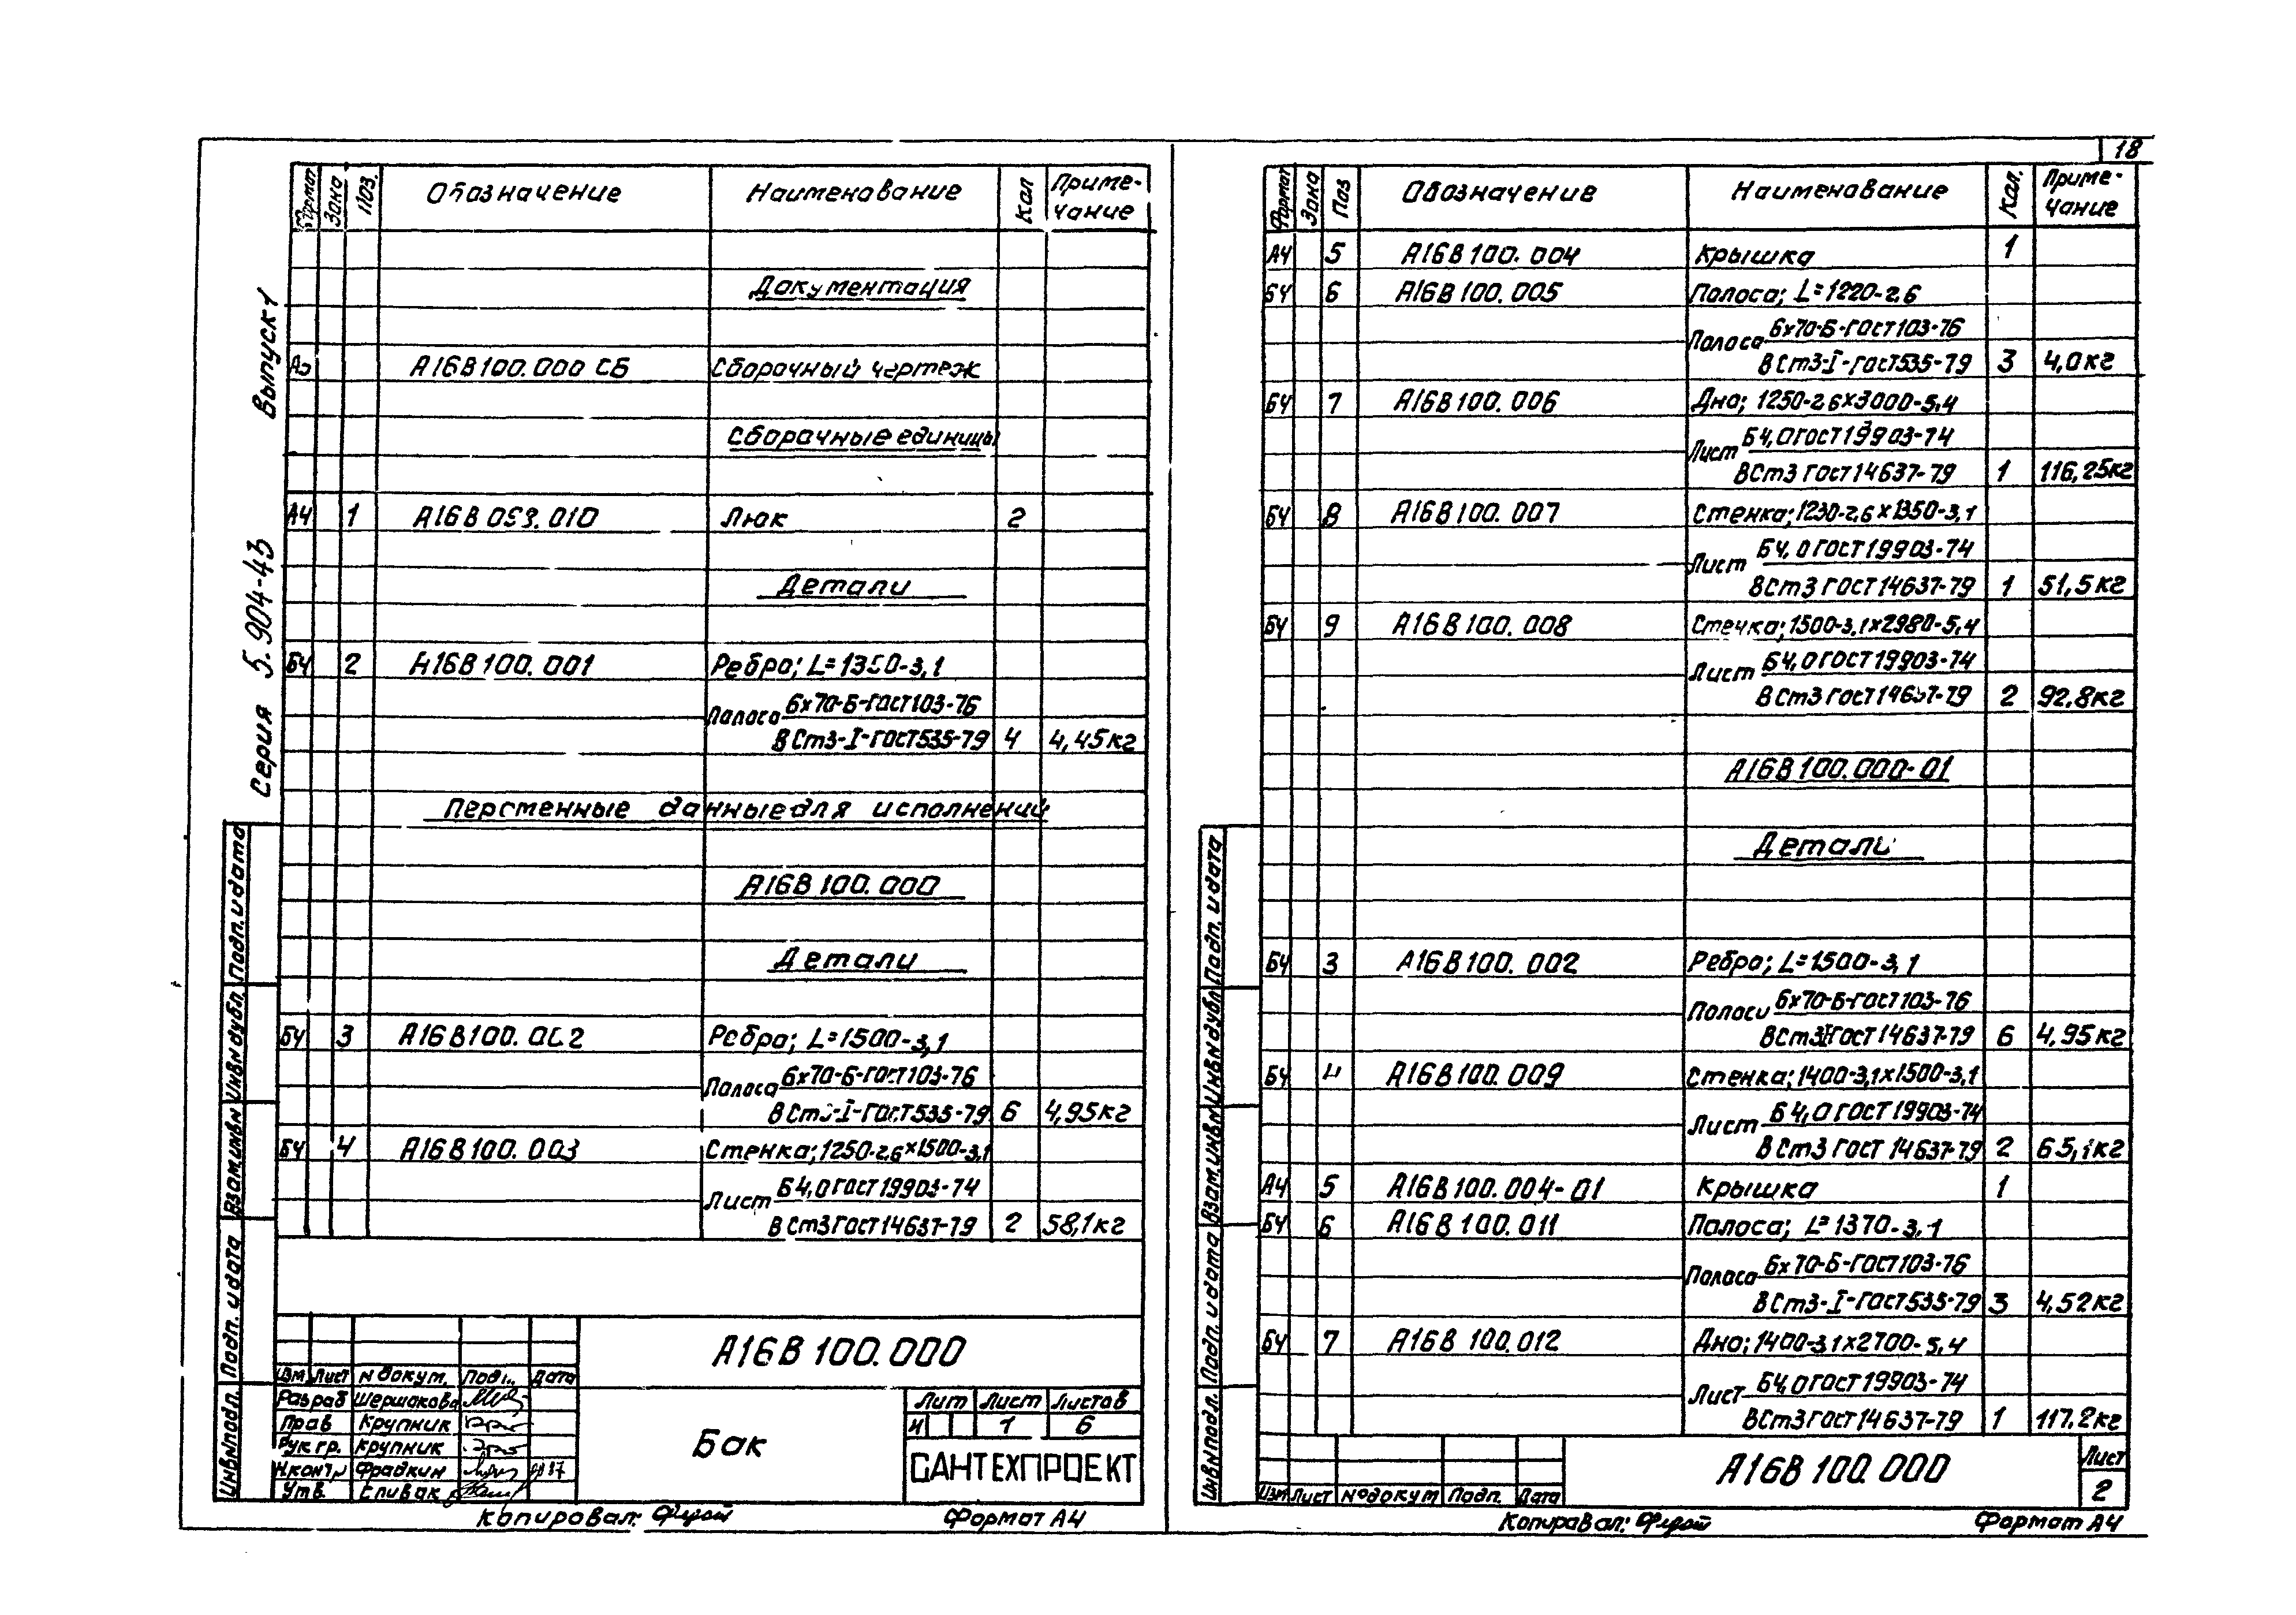 18
Серия 5.904-43 Выпуск 1
Формат Зона Поз. Обозначение Наименование Кол Приме-
чание
Документация
А3 А16В100.000 СБ Сборочный чертеж
Сборочные единицы
А4 1 А16В 099.010 Люк 2
Детали
БЧ 2 А16В 100.001 Ребро; L=1350-3,1
Полоса 6х70-Б-ГОСТ103-76
ВСт3-I-ГОСТ535-79 4 4,45кг
Переменные данные для исполнений
А16В 100.000
Детали
БЧ 3 А16В100.002 Ребро; L=1500-3,1
Полоса 6х70-Б-ГОСТ103-76
ВСт3-I-ГОСТ535-79 6 4,95кг
БЧ 4 А16В100.003 Стенка; 1250-2,6×1500-3,1
Лист Б4,0 ГОСТ19903-74
ВСт3 ГОСТ14637-79 2 58,1кг
Инв.Nподл. Подп. и дата Взам.инвN ИнвNдубл. Подп. и дата
А16В 100.000
Изм Лист N докум. Подп. Дата
Разраб Шершакова
Пров Крупник
Рук гр. Крупник
Н.контр Фрадкин
Утв. Спивак
Бак
Лит Лист Листов
И 1 6
САНТЕХПРОЕКТ
Копировал: Формат А4
Формат Зона Поз Обозначение Наименование Кол. Приме-
чание
А4 5 А16В 100.004 Крышка 1
БЧ 6 А16В 100.005 Полоса; L=1220-2,6
Полоса 6х70-Б-ГОСТ103-76
ВСт3-I-ГОСТ535-79 3 4,0кг
БЧ 7 А16В 100.006 Дно; 1250-2,6×3000-5,4
Лист Б4,0 ГОСТ19903-74
ВСт3 ГОСТ14637-79 1 116,25кг
БЧ 8 А16В100.007 Стенка; 1230-2,6×1350-3,1
Лист Б4,0 ГОСТ19903-74
ВСт3 ГОСТ14637-79 1 51,5кг
БЧ 9 А16В 100.008 Стенка; 1500-3,1×2980-5,4
Лист Б4,0 ГОСТ19903-74
ВСт3 ГОСТ14637-79 2 92,8кг
А16В 100.000-01
Детали
БЧ 3 А16В100.002 Ребро; L=1500-3,1
Полоса 6х70-Б-ГОСТ103-76
ВСт3I ГОСТ14637-79 6 4,95кг
БЧ 4 А16В100.009 Стенка; 1400-3,1×1500-3,1
Лист Б4,0 ГОСТ19903-74
ВСт3 ГОСТ 14637-79 2 65,1кг
А4 5 А16В100.004-01 Крышка 1
БЧ 6 А16В 100.011 Полоса; L=1370-3,1
Полоса 6х70-Б-ГОСТ103-76
ВСт3-I-ГОСТ535-79 3 4,52кг
БЧ 7 А16В 100.012 Дно; 1400-3,1×2700-5,4
Лист Б4,0 ГОСТ19903-74
ВСт3 ГОСТ14637-79 1 117.2кг
Инв.Nподл. Подп. и дата Взам.инвN ИнвNдубл Подп. и дата
Изм Лист N°докум Подп. Дата
А16В 100.000
Лист
2
Копировал: Формат А4